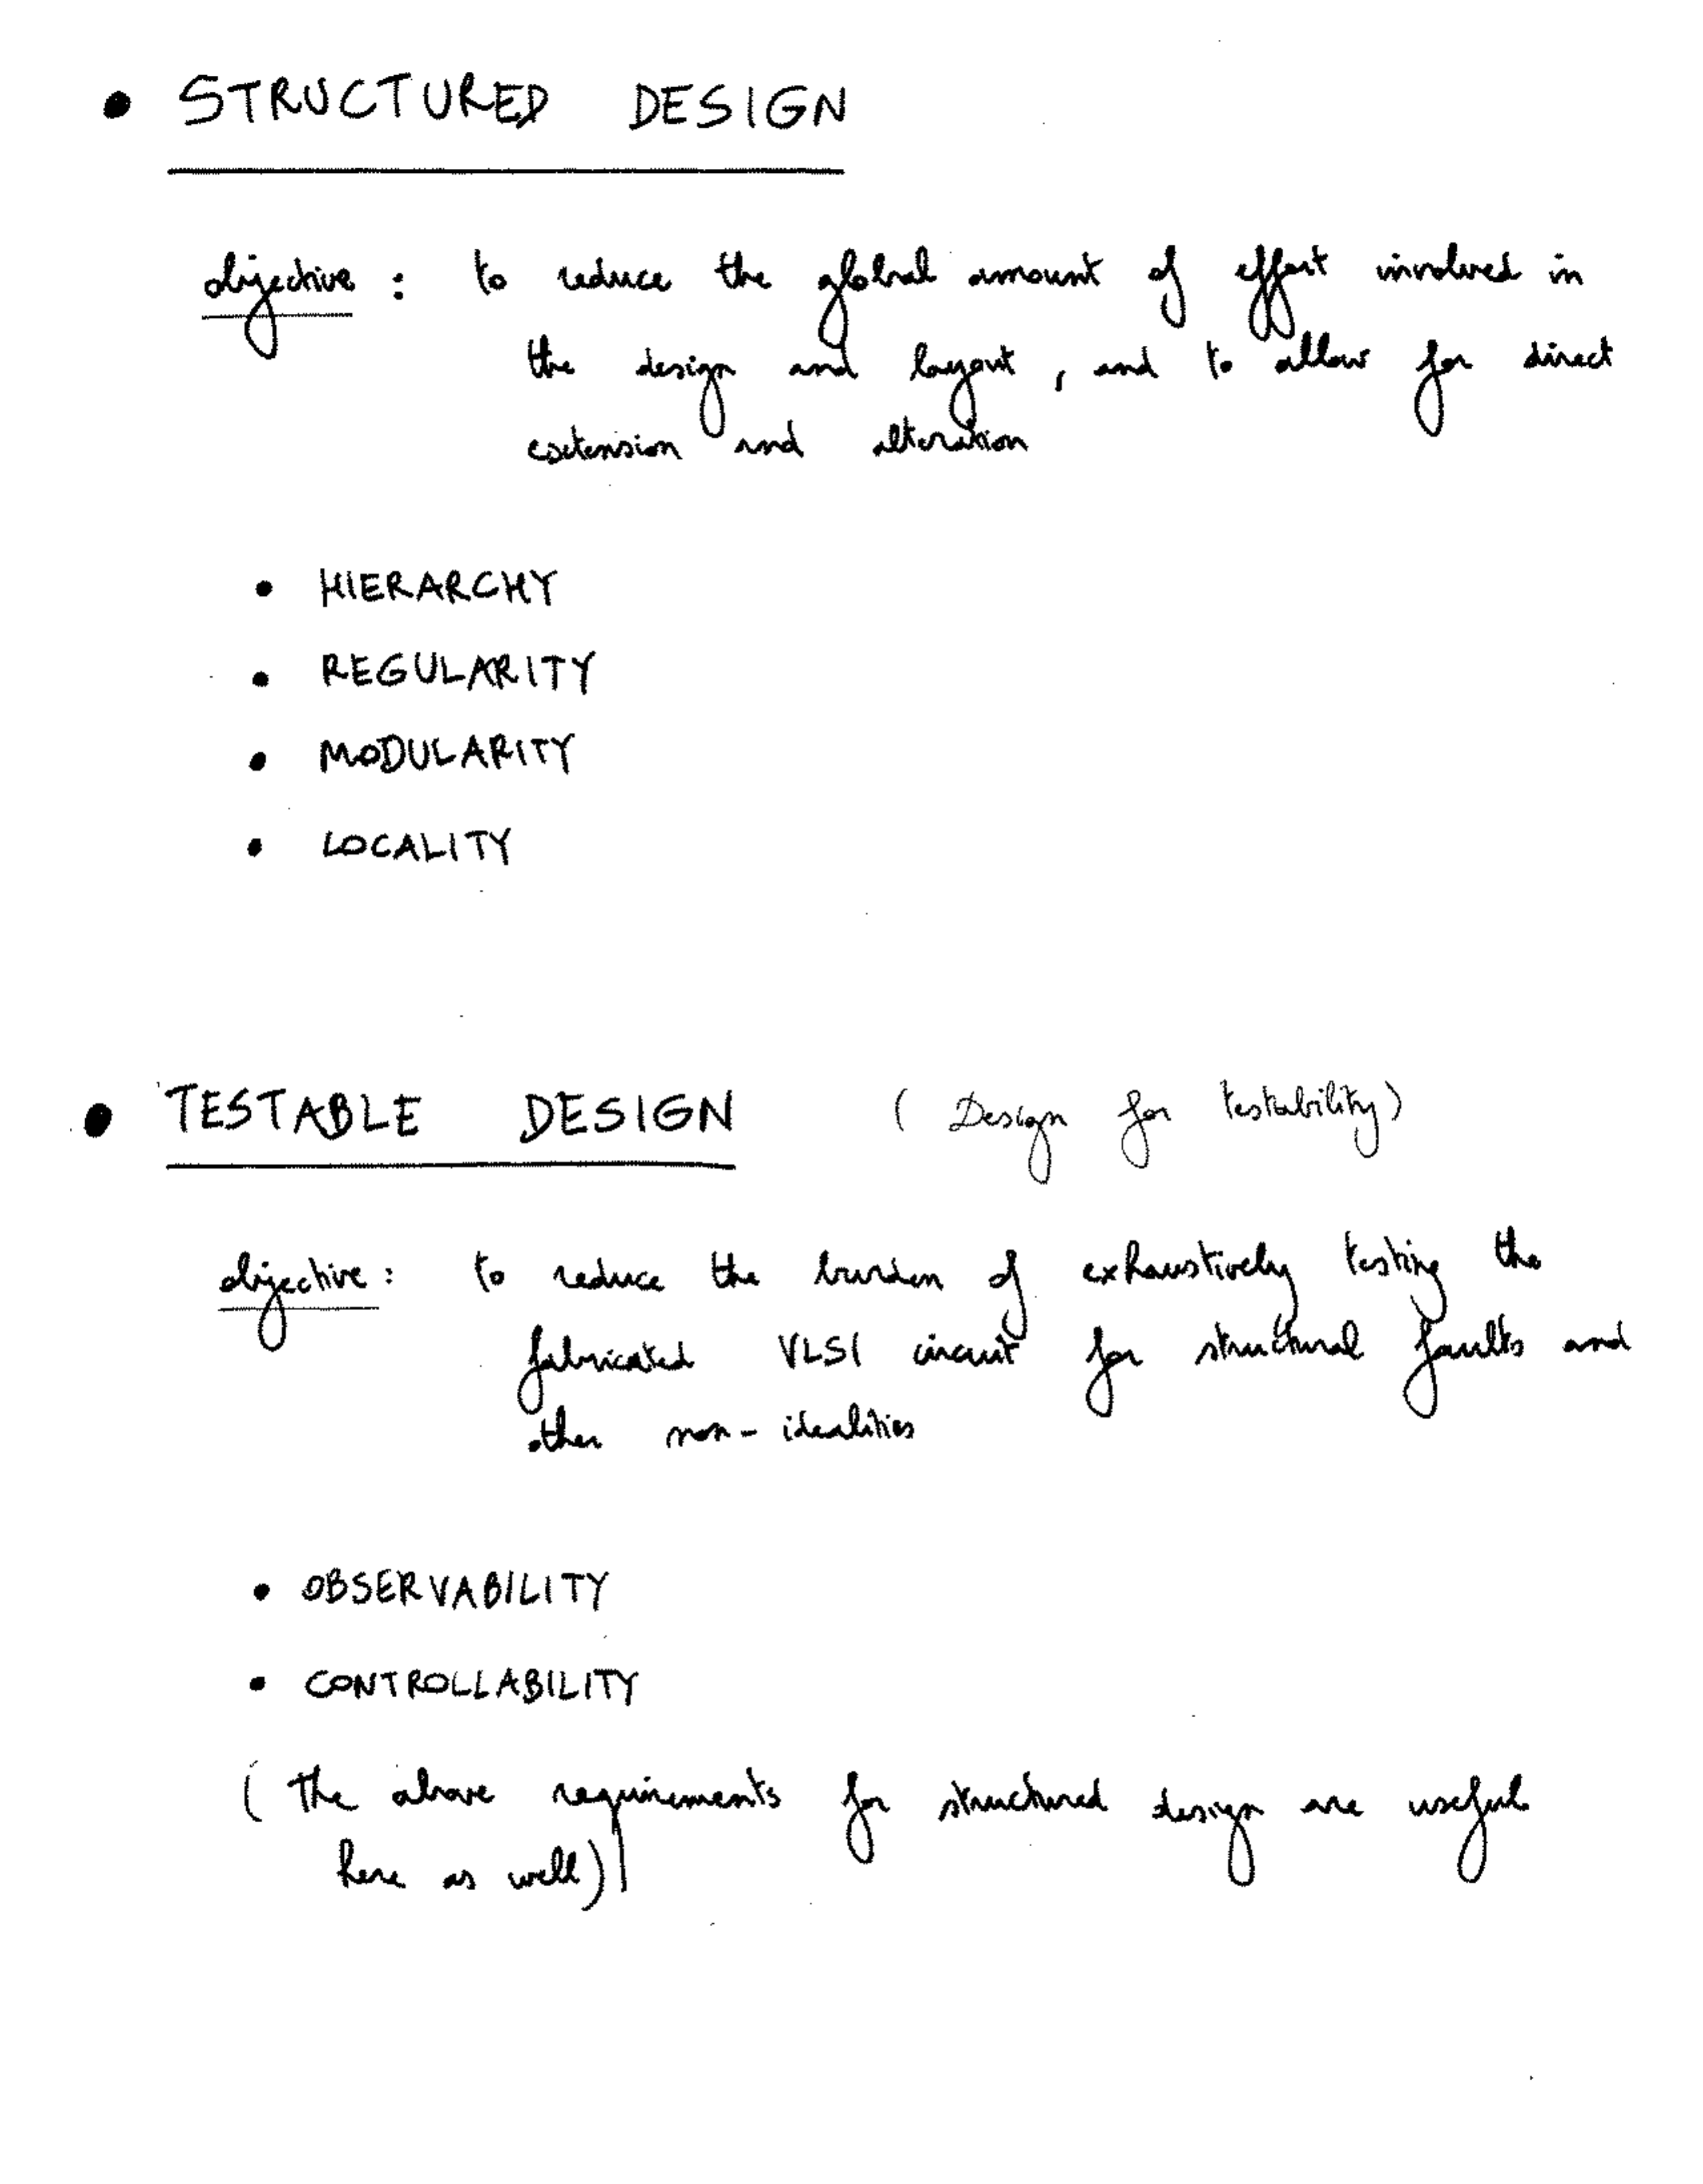 • STRUCTURED DESIGN
objective : to reduce the global amount of effort involved in
the design and layout, and to allow for direct
extension and alteration
• HIERARCHY
• REGULARITY
• MODULARITY
• LOCALITY
• TESTABLE DESIGN ( Design for testability)
objective : to reduce the burden of exhaustively testing the
fabricated VLSI circuit for structural faults and
other non-idealities
• OBSERVABILITY
• CONTROLLABILITY
( The above requirements for structured design are useful
here as well)